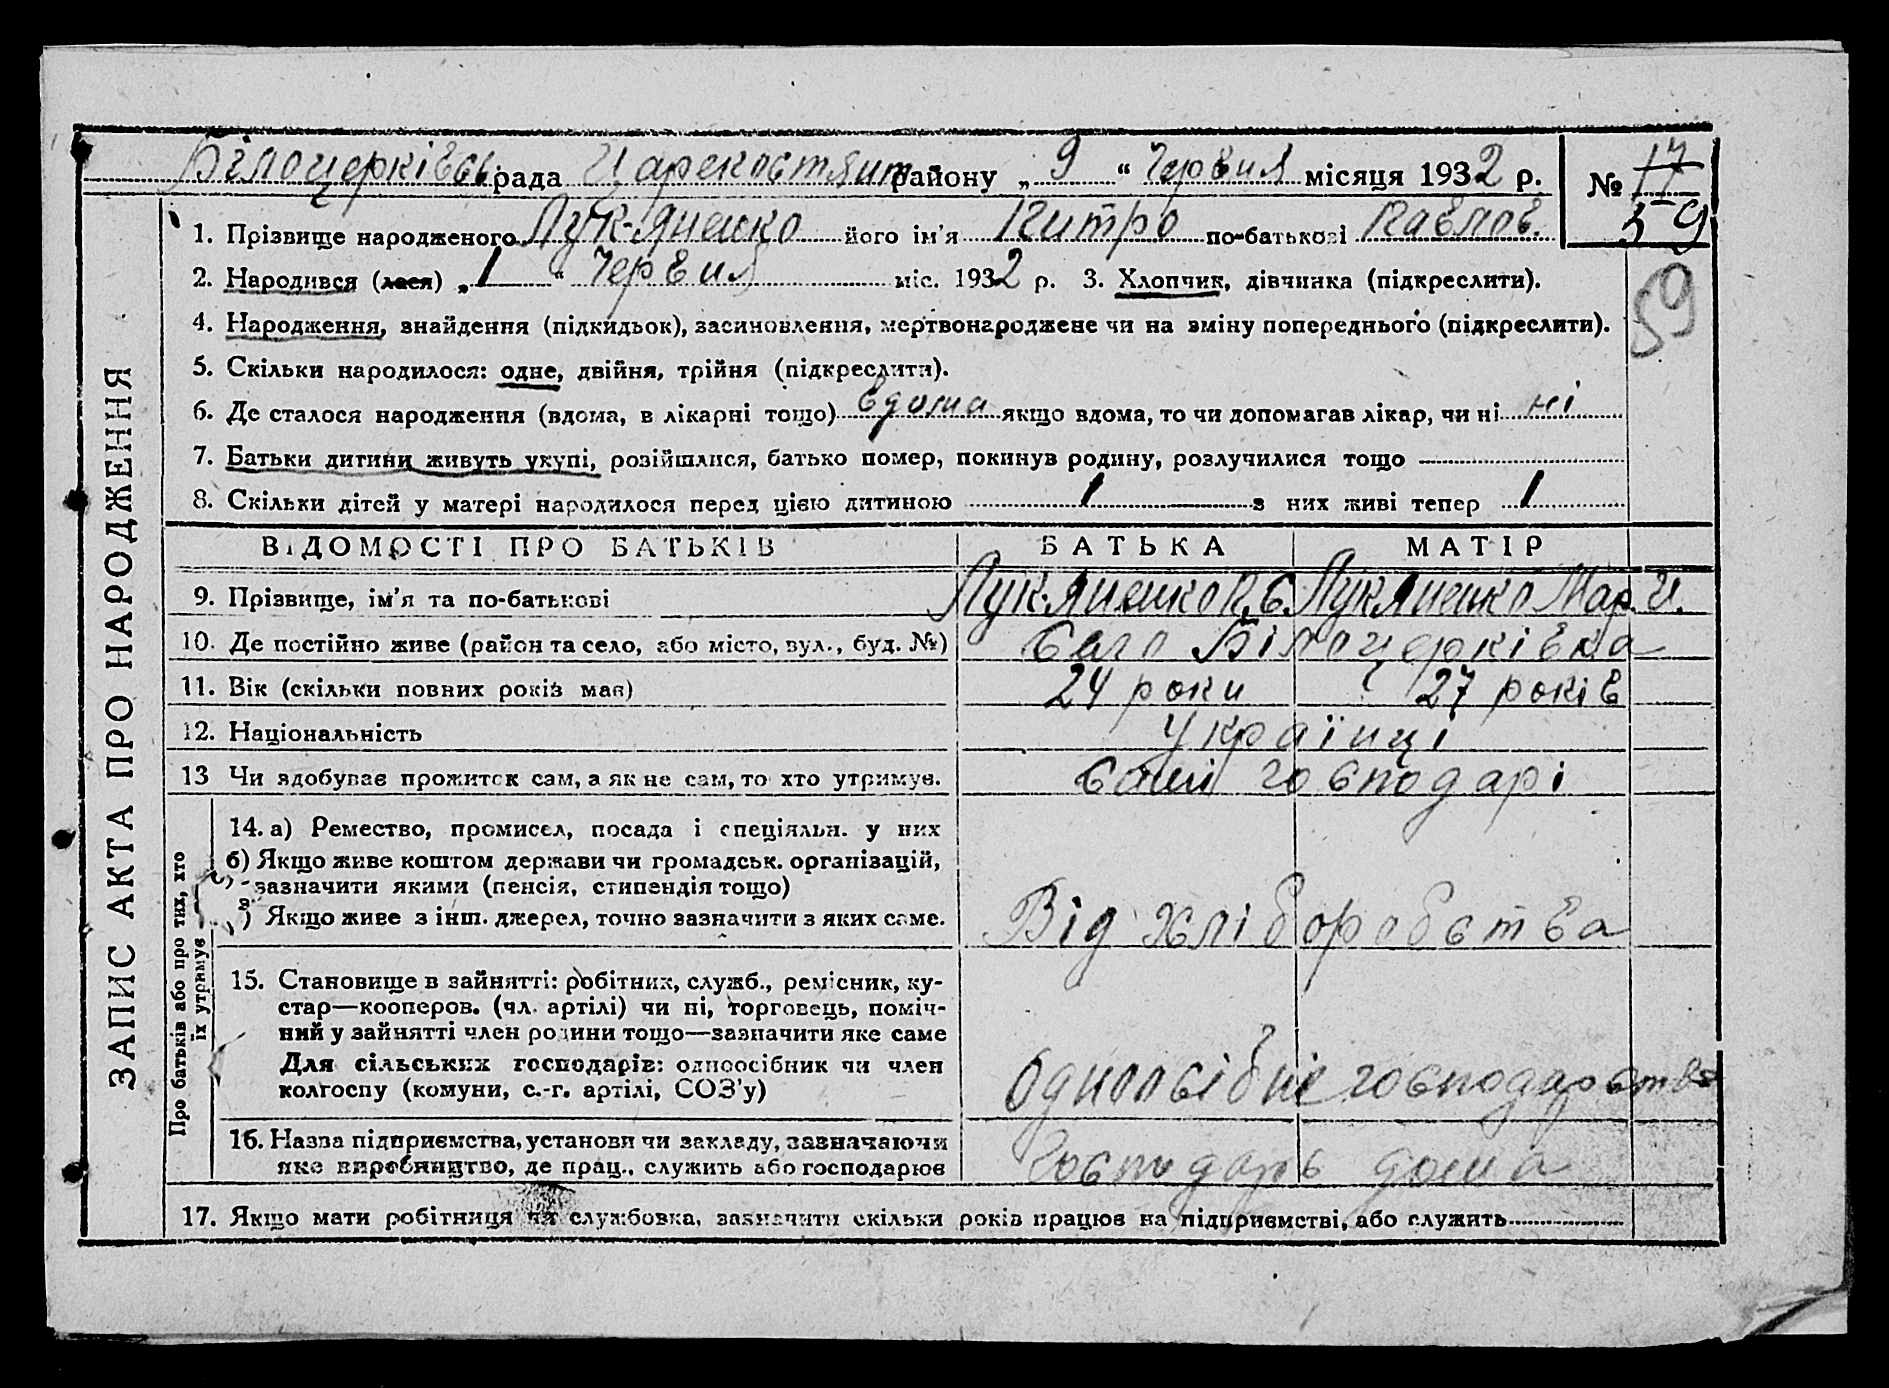 Білоцерківсь рада Царекостянт району „ 9 “ Червня місяця 1932 р. № 17
59
1. Прізвище народженого Лук-яненко його ім'я Питро по-батькові Павлов.
2. Народився (лася) „ 1 “ Червня міс. 1932 р. 3. Хлопчик, дівчинка (підкреслити).
59
4. Народження, знайдення (підкидьок), засиновлення, мертвонароджене чи на зміну попереднього (підкреслити).
5. Скільки народилося: одне, двійня, трійня (підкреслити).
6. Де сталося народження (вдома, в лікарні тощо) вдома якщо вдома, то чи допомагав лікар, чи ні ні
7. Батьки дитини живуть укупі, розійшлися, батько помер, покинув родину, розлучилися тощо
8. Скільки дітей у матері народилося перед цією дитиною 1 з них живі тепер 1
ЗАПИС АКТА ПРО НАРОДЖЕННЯ
ВІДОМОСТІ ПРО БАТЬКІВ БАТЬКА МАТІР
9. Прізвище, ім'я та по-батькові Лук-яненко П. Є. Лукяненко Мар. И.
10. Де постійно живе (район та село, або місто, вул., буд. №) Село Білоцерківка
11. Вік (скільки повних років має) 24 роки 27 років
12. Національність Українці
13 Чи здобуває прожиток сам, а як не сам, то хто утримує. самі господарі
Про батьків або про тих, хто
їх утримує
14. а) Ремество, промисел, посада і спеціяльн. у них
б) Якщо живе коштом держави чи громадськ. організацій,
зазначити якими (пенсія, стипендія тощо)
в) Якщо живе з інш. джерел, точно зазначити з яких саме.
Від хліборобства
15. Становище в зайнятті: робітник, служб., ремісник, ку-
стар—кооперов. (чл. артілі) чи ні, торговець, поміч-
ний у зайнятті член родини тощо—зазначити яке саме
Для сільських господарів: одноосібник чи член
колгоспу (комуни, с.-г. артілі, СОЗ'у)
Одноосібне господарство
16. Назва підприємства, установи чи закладу, зазначаючи
яке виробництво, де прац., служить або господарює
Господарь дома
17. Якщо мати робітниця чи службовка, зазначити скільки років працює на підприємстві, або служить